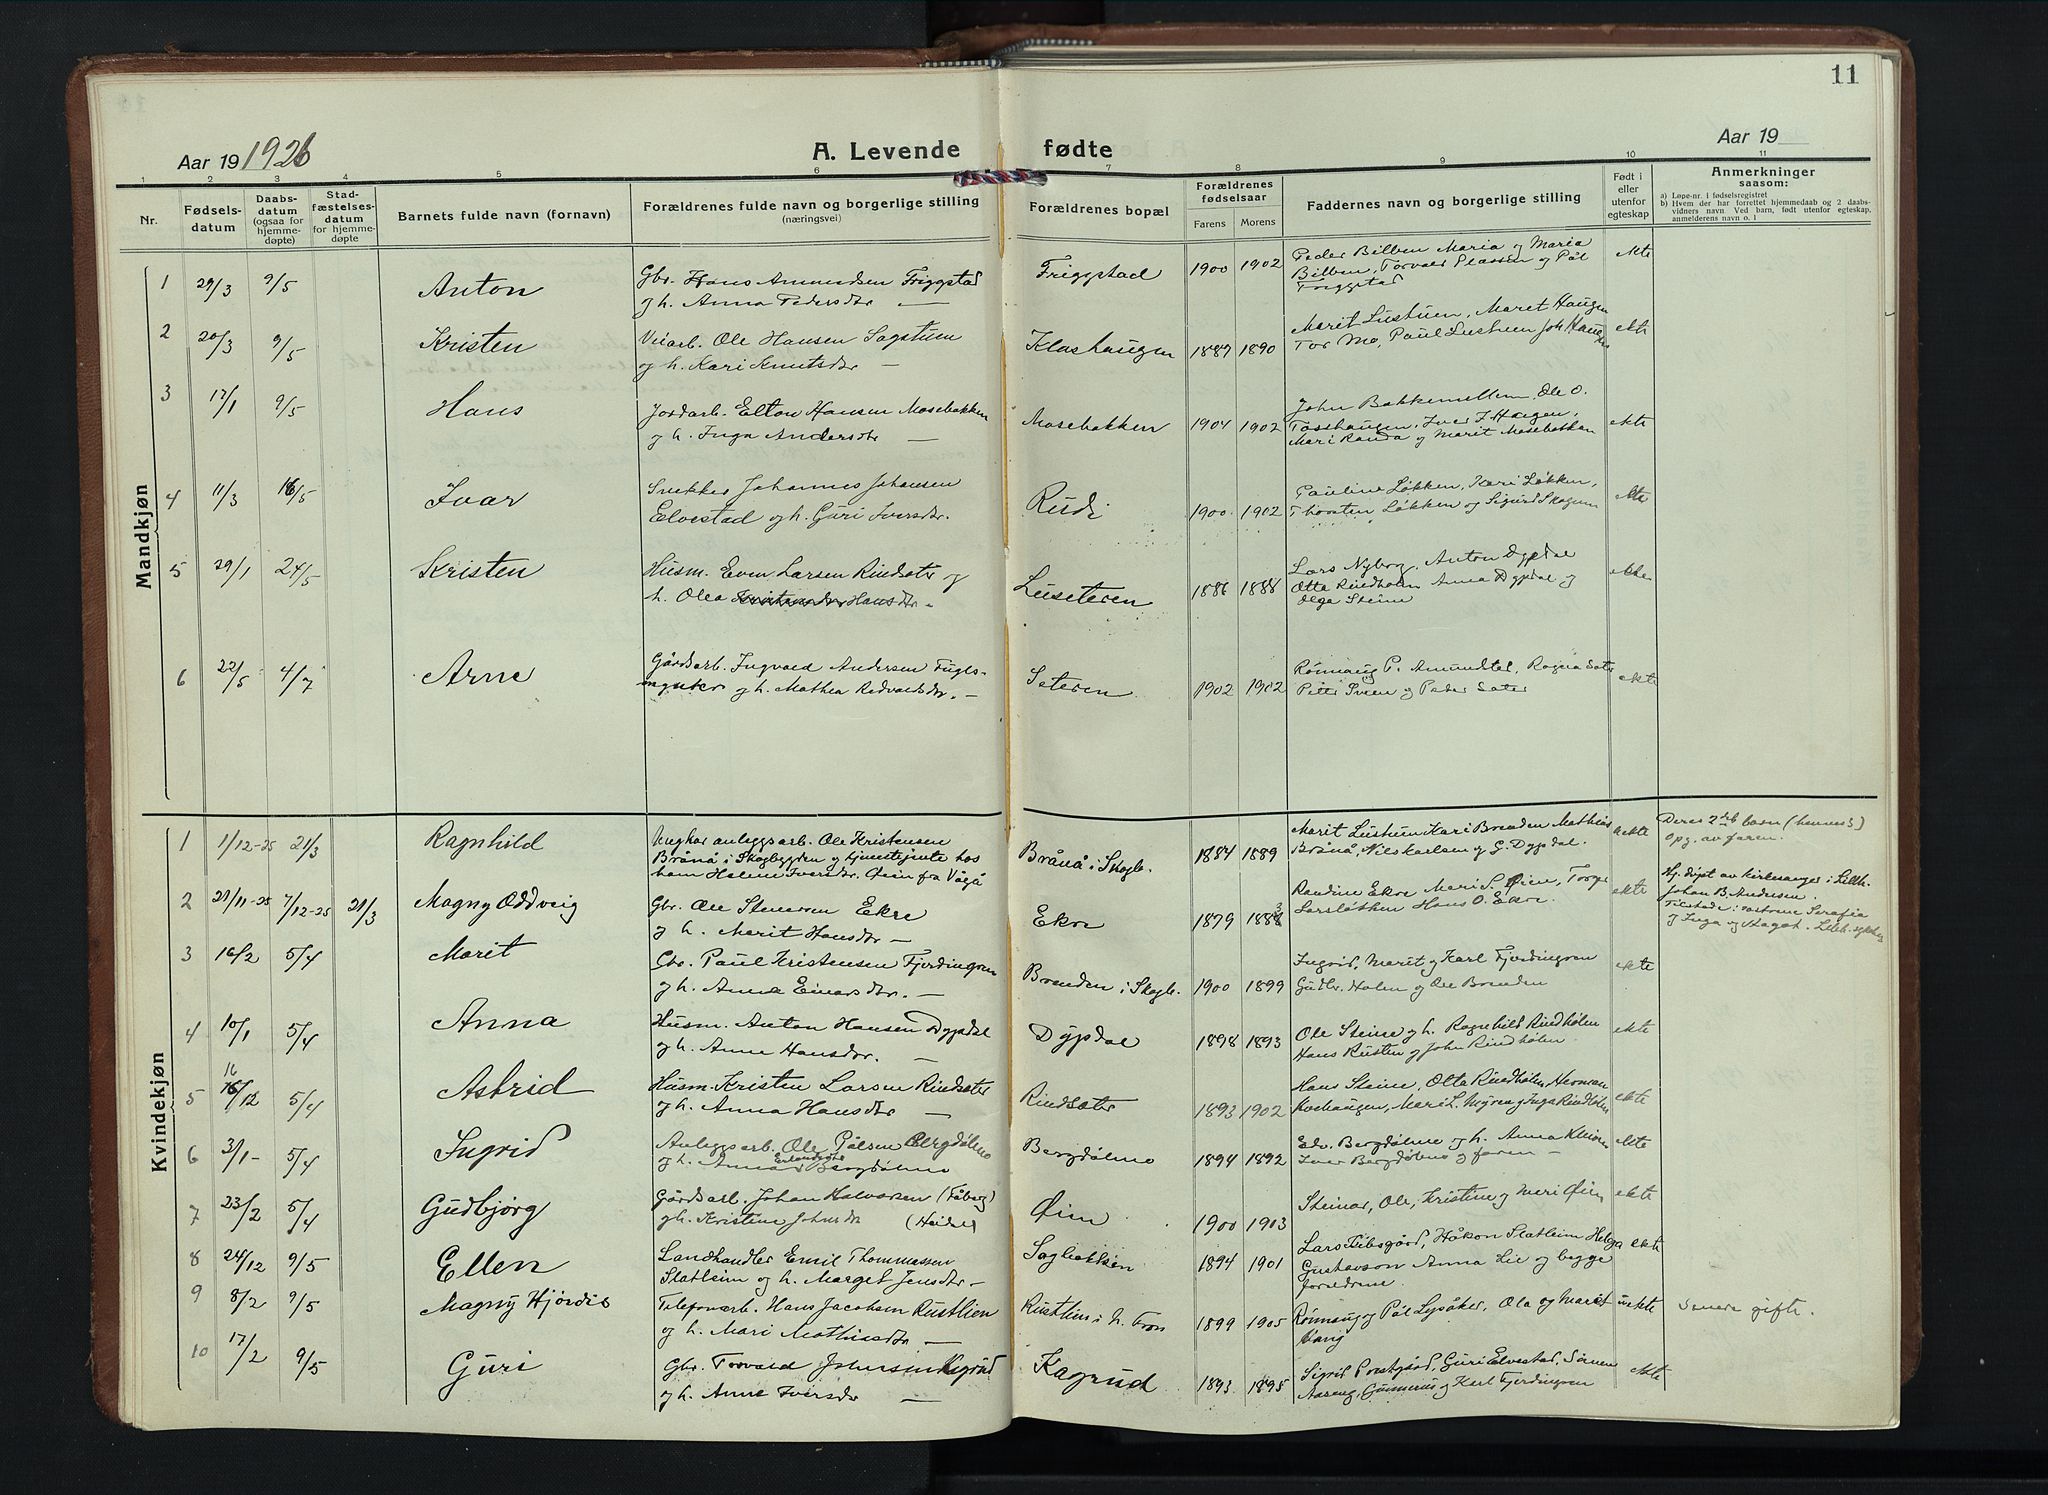 11
Aar 19 1926
A. Levende fødte
Aar 19
1 2 3 4 5 6 7 8 9 10 11
Nr.
Fødselsdatum
Daabsdatum (ogsaa for hjemmedøpte)
Stadfæstelsesdatum for hjemmedøpte
Barnets fulde navn (fornavn)
Forældrenes fulde navn og borgerlige stilling
(næringsvei)
Forældrenes bopæl
Forældrenes fødselsaar
Farens Morens
Faddernes navn og borgerlige stilling
Født i eller utenfor egteskap
Anmerkninger
saasom:
a) Løpe-nr. i fødselsregistret
b) Hvem der har forrettet hjemmedaab og 2 daabsvidners navn. Ved barn, født utenfor egteskap, anmelderens navn o. l
Mandkjøn
1 29/3 9/5 Anton
Gbr. Hans Amundsen Friggstad
og h. Anna Pedersdtr —
Friggstad 1900 1902
Peder Bilben Maria og Maria
Bilben, Torvald Plassen og Pål
Friggstad
ekte
2 20/3 9/5 Kristen
Veiarb. Ole Hansen Sagstuen
og h. Kari Knutsdtr —
Klashaugen 1887 1890
Marit Lustuen, Maret Haugen
Tor Mo, Paul Lustuen Joh Haugen
ekte
3 17/1 9/5 Hans
Jordarb. Elton Hansen Mosebakken
og h. Inga Andersdtr —
Mosebakken 1904 1902
John Bakkemellem, Ole O.
Tosshaugen, Iver J. Haugen,
Mari Randa og Marit Mosebakken
ekte
4 11/3 16/5 Ivar
Snekker Johannes Johansen
Elvestad og h. Guri Iversdtr.
Rudi 1900 1902
Pauline Løkken, Kari Løkken,
Thorsten Løkken og Sigurd Skogum
ekte
5 29/1 24/5 Kristen
Husm. Even Larsen Rindsæter og
h. Olea Hansdtr —
Luseteren 1886 1888
Lars Nyborg, Anton Dypdal
Otta Rindholen Anna Dypdal og
Olga Steine
ekte
6 22/5 4/7 Arne
Gårdsarb. Ingvald Andersen Fugls-
og h. Mathea Redvaldsdtr. —
Seteren 1902 1902
Rønnaug P. Amundstad, Ragna Sæter
Petter Sveen og Peder Sæter
ekte
Kvindekjøn
1 1/12-25 21/3 Ragnhild
Ungkar anleggsarb. Ole Kristensen
Brånå i Skogbygden og tjenestejente hos
ham Helene Iversdtr. Øien fra Vågå
Brånå i Skogb. 1884 1889
Marit Lustuen Kari Brenden Mathias
Brånå, Nils Karlsen og G. Dypdal.
uekte
Deres 2det barn (hennes 3)
Opg. av faren.
2 29/11-25 7/12-25 21/3 Magny Oddveig
Gbr. Ole Stenersen Ekre
og h. Marit Hansdtr —
Ekre 1879 1883
Randine Ekre Mari S. Øien, Torger
Larsløkken Hans O. Ekre.
ekte
Hj. døpt av kirkesanger i Lillh.
Johan B. Andersen.
Tilstede: søstrene Serafia
og Inga og Aagot. Lillh. sykehus
3 16/2 5/4 Marit
Gbr. Paul Kristensen Fjerdingren
og h. Anna Einarsdtr. —
Brenden i Skogb. 1900 1899
Ingrid, Marit og Karl Fjerdingren
Gudbr. Holen og Ole Brenden
ekte
4 10/1 5/4 Anna
Husm. Anton Hansen Dypdal
og h. Anne Hansdtr. —
Dypdal 1898 1893
Ole Steine og h. Ragnhild Rindholen
Hans Rusten og John Rindhølen
ekte
5 16/12 5/4 Astrid
Husm. Kristen Larsen Rindsæter
og h. Anna Hansdtr —
Rindsæter 1893 1902
Hans Steine, Otta Rindholen, Herman
Kvehaugen, Mari L. Myren og Inga Rindhølen
ekte
6 3/1- 5/4 Ingrid
Anleggsarb. Ole Pålsen Bergdølmo
og h. Anna Erlandsdtr Bergdølmo
Bergdølmo 1894 1892
Edv. Bergdølmo og h. Anna Kleiven
Iver Bergdølmo og faren —
ekte
7 23/2 5/4 Gudbjørg
Gårdsarb. Johan Halvorsen (Fåberg)
og h. Kristine Johnsdtr (Heidal)
Øien 1900 1903
Steinar, Ole, Kristine og Mari Øien
ekte
8 24/12 9/5 Ellen
Landhandler Emil Thommassen
Slatleim og h. Marget Jensdtr —
Sagbakken 1894 1901
Lars Fibsgård, Håkon Slatleim Helga
Gustavson Anna Lie og begge
foreldrene.
ekte
9 8/2 9/5 Magny Hjørdis
Telefonarb. Hans Jacobsen Rustlien
og h. Mari Mathisdtr —
Rustlien i N. Fron 1899 1905
Rønnaug og Pål Lysåker, Ola og Marit
Vang
uekte
Senere gifte.
10 17/2 9/5 Guri
Gbr. Torvald Johnsen Kagrud
og h. Anne Iversdtr —
Kagrud 1893 1895
Sigrid Prestgård, Guri Elvestad, Søren
Aareng, Gunnerius og Karl Fjerdingren
ekte